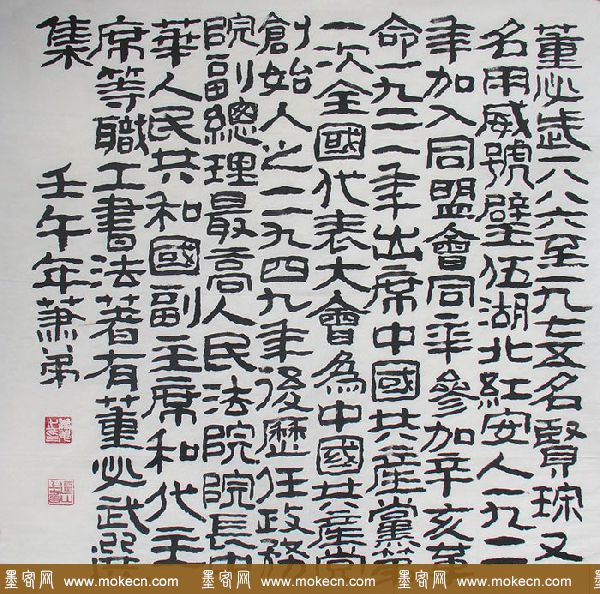 董必武一八八六至一九七五名賢琮又
名用威號璧伍湖北紅安人一九一一
年加入同盟會同年參加辛亥革
命一九二一年出席中國共產黨第
一次全國代表大會為中國共產党
創始人之一一九四九年後歷任政務
院副總理最高人民法院院長中
華人民共和國副主席和代主
席等職工書法著有董必武選
集
壬午年蕭弟
墨客网 www.mokecn.com 墨客网 www.mokecn.com 墨客网 www.mokecn.com